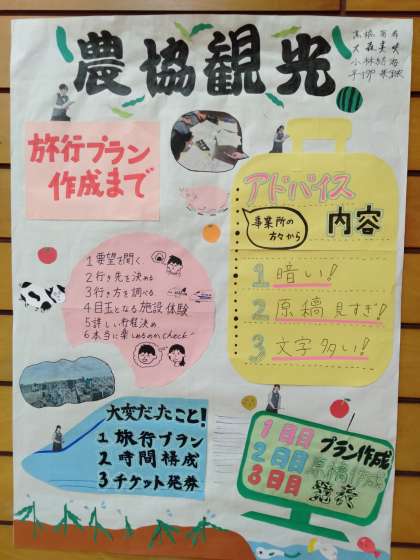 農協観光
旅行プラン
作成まで
1 要望を聞く
2 行き先を決める
3 行き方を調べる
4 目玉となる施設 体験
5 詳しい行程決め
6 本当に楽しめるのかcheck
アドバイス
事業所の
方々から
内容
1 暗い!
2 原稿見すぎ!
3 文字多い!
大変だったこと!
1 旅行プラン
2 時間構成
3 チケット発券
1日目 プラン作成
2日目 原稿作成
3日目 発表